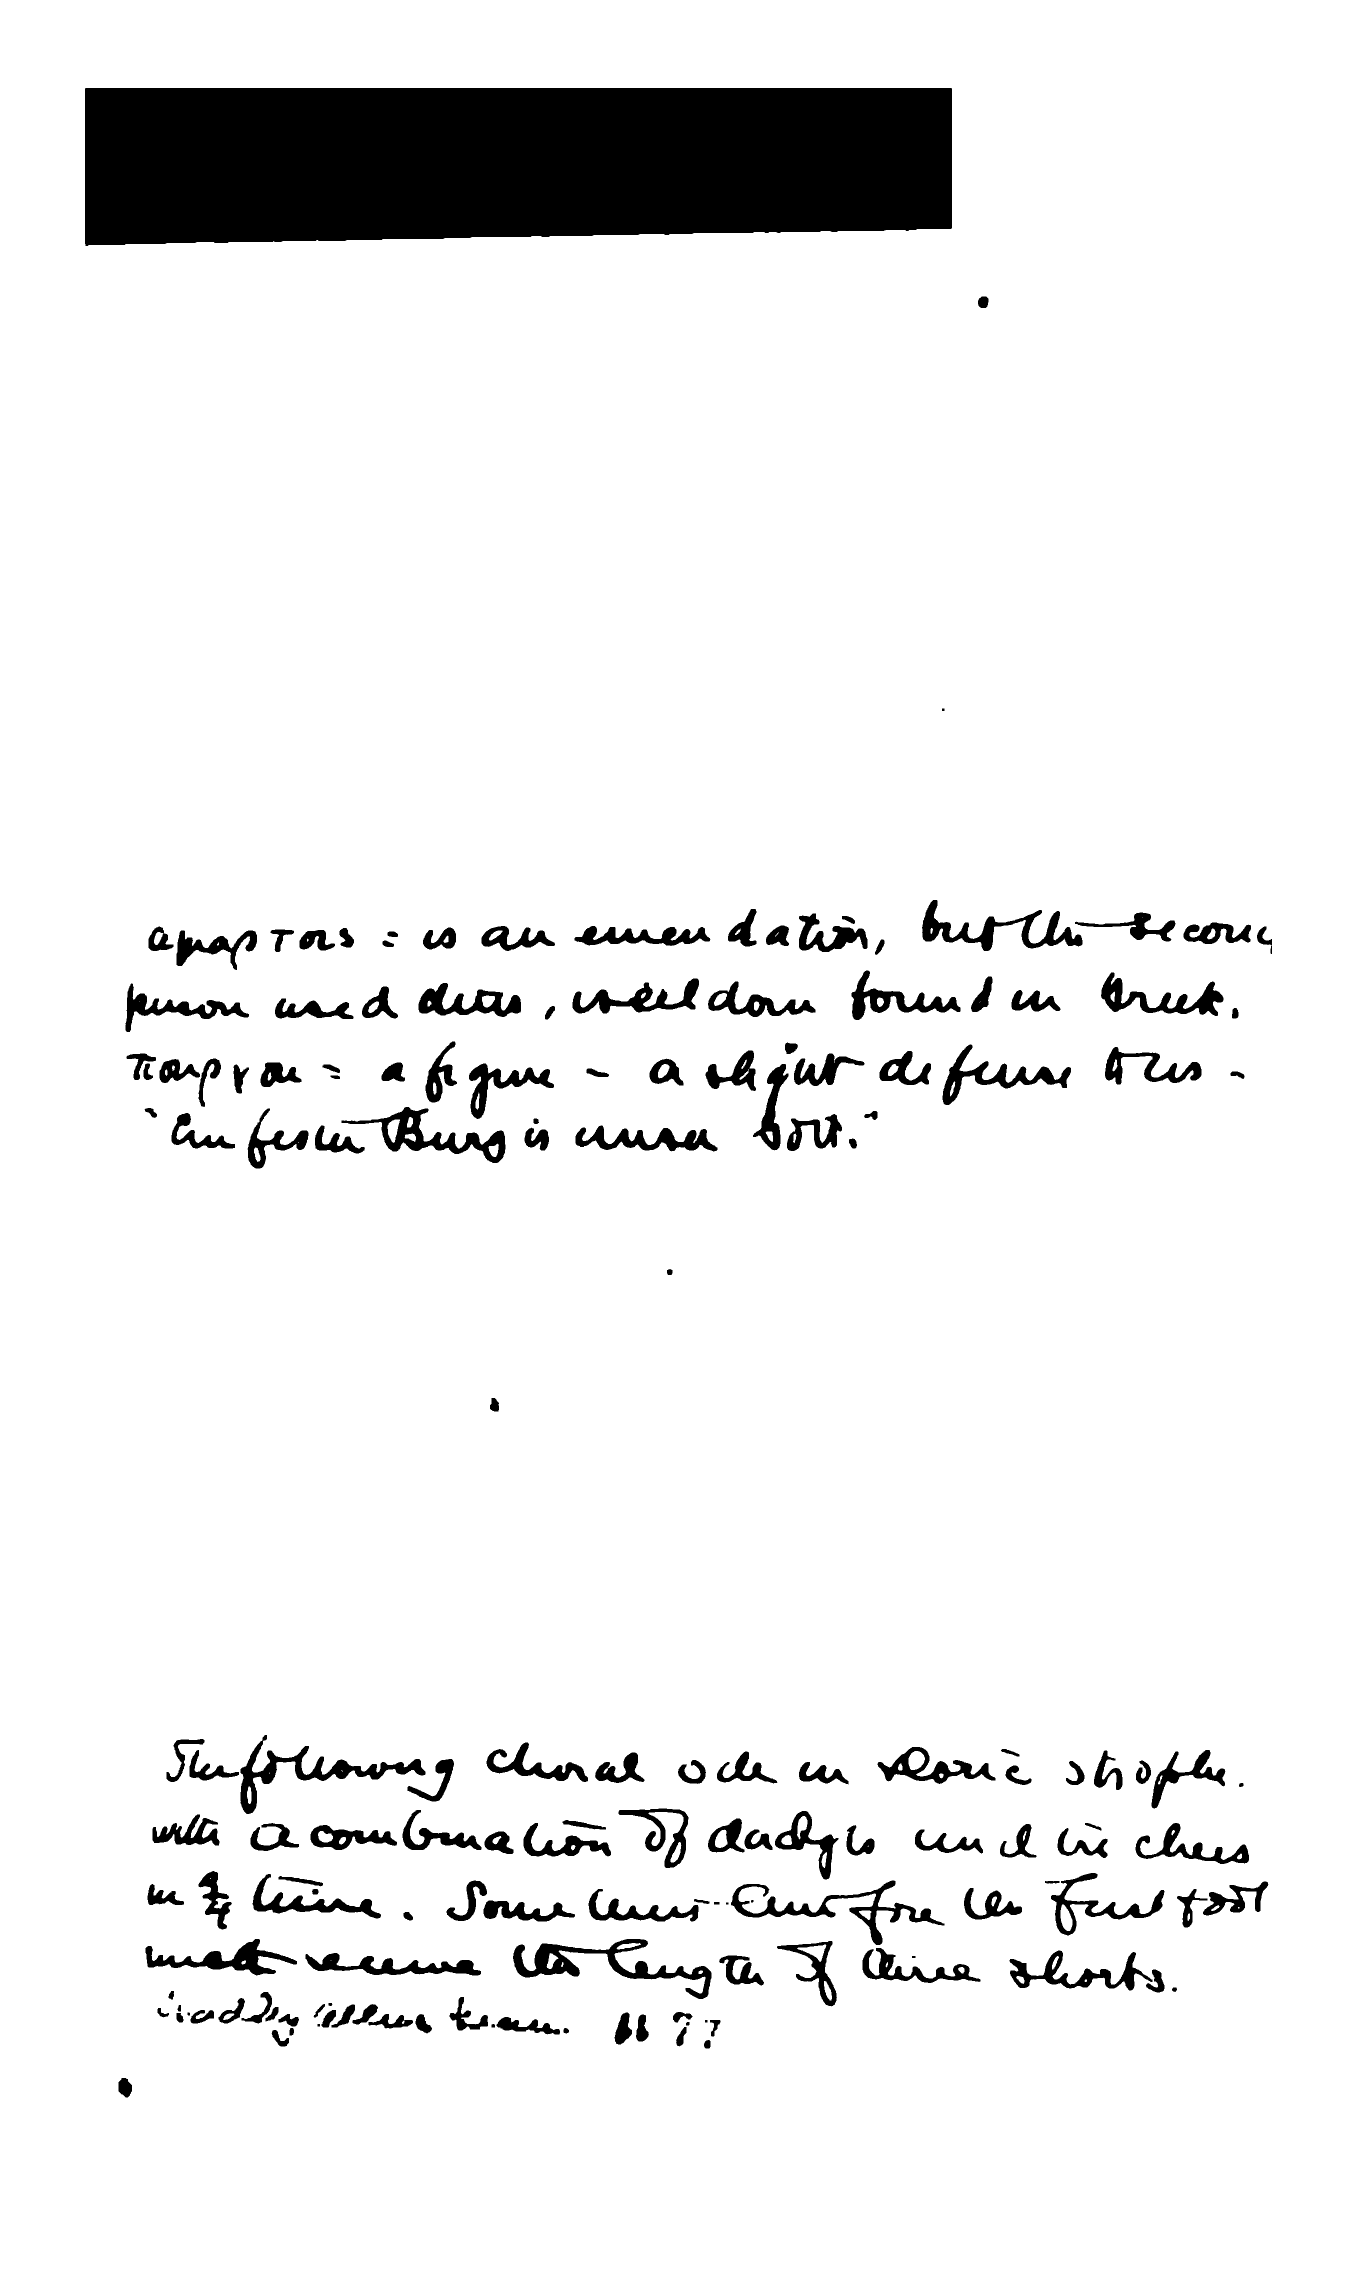 αμαρτοις = is an emendation, but the second
person used thus, is seldom found in Greek.
πυργοι = a figure - a slight defense this -
"Ein feste Burg is unser Gott."
The following choral ode in Doric strophe.
with a combination of dactyls and trochees
in 4/4 time. Sometimes therefore the first foot
must receive the length of three shorts.
77